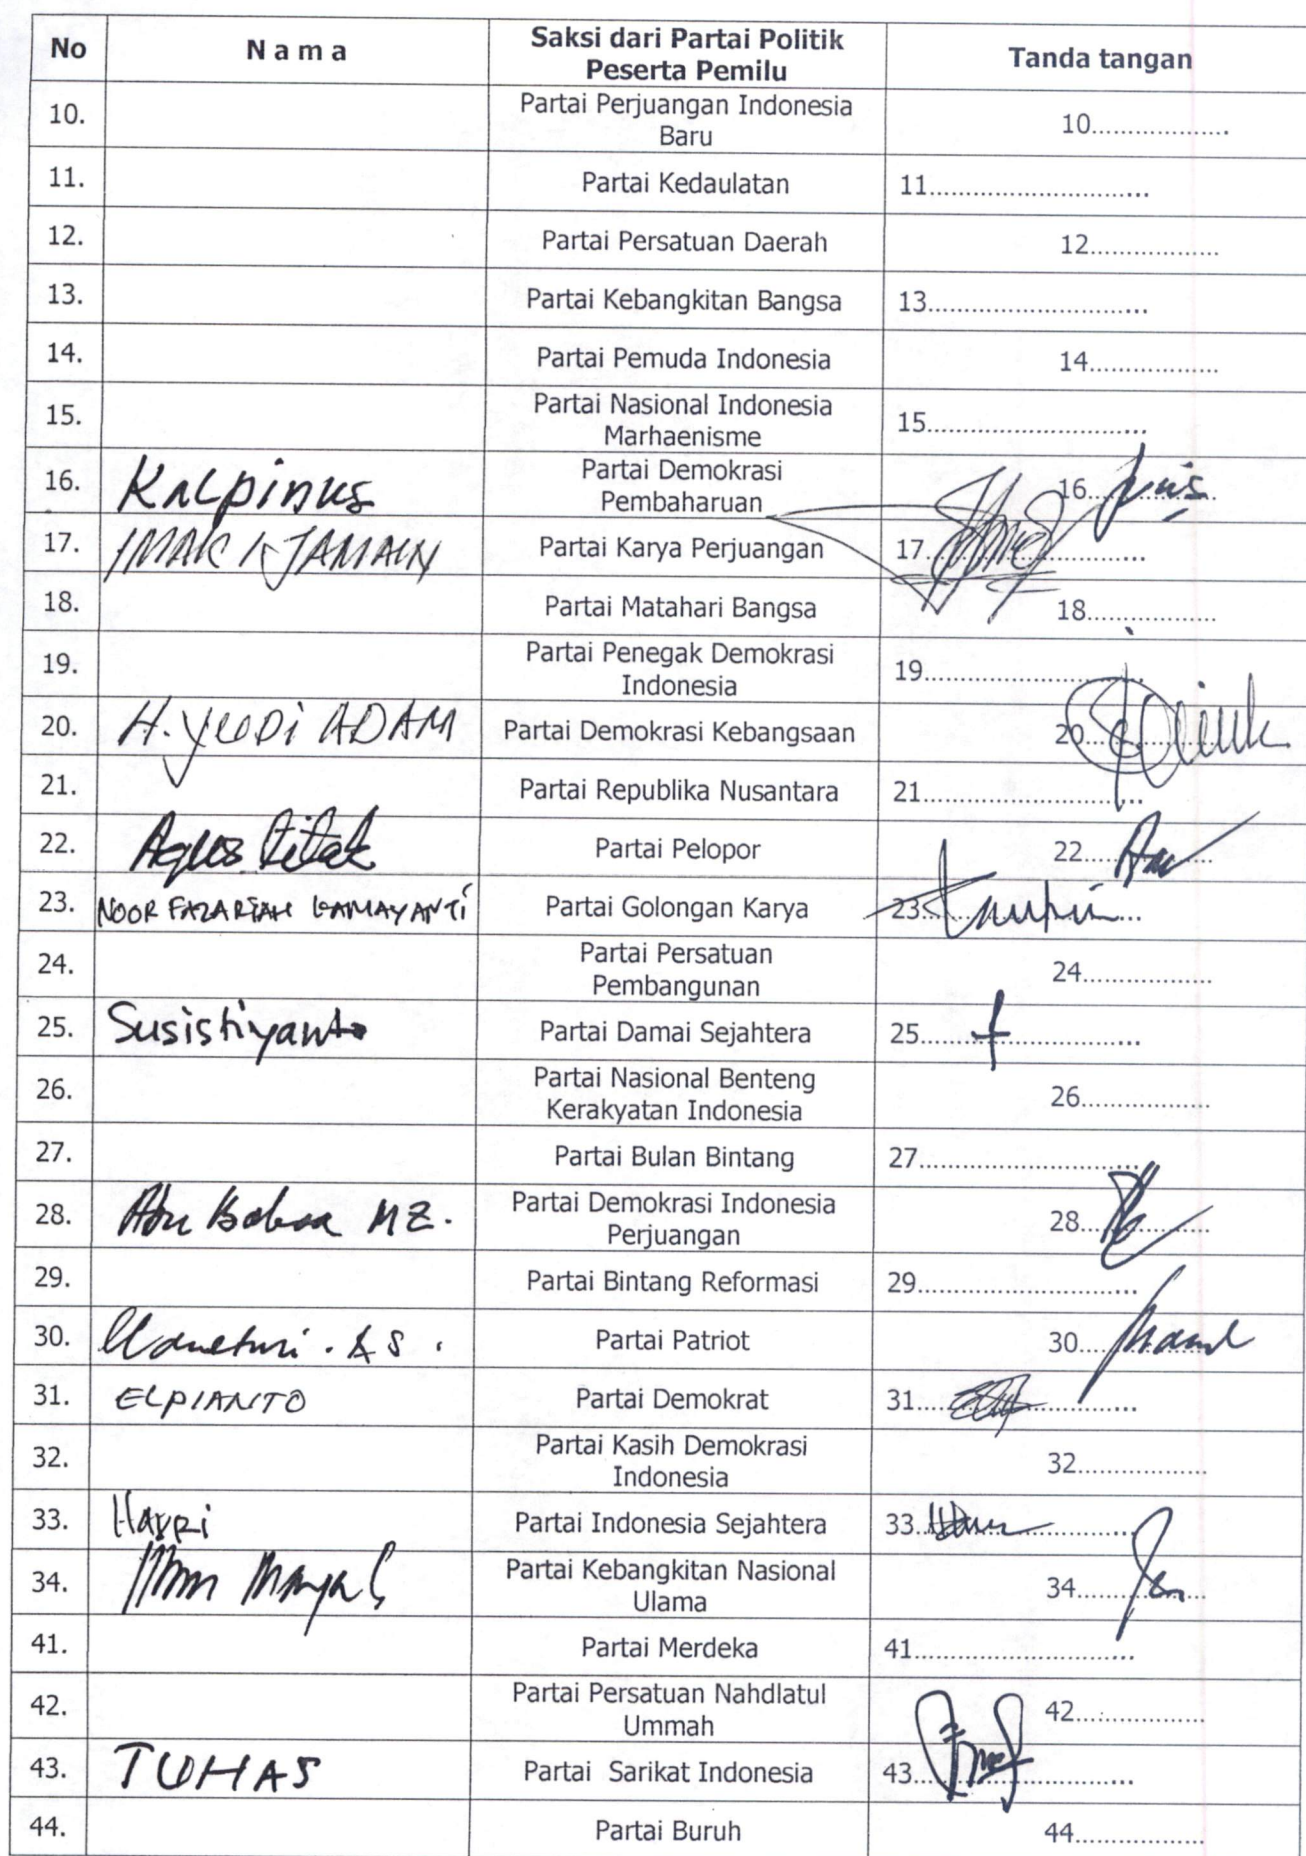 No Nama Saksi dari Partai Politik Tanda tangan
Peserta Pemilu
10. Partai Perjuangan Indonesia 10..................
Baru
11. Partai Kedaulatan 11............................
12. Partai Persatuan Daerah 12..................
13. Partai Kebangkitan Bangsa 13............................
14. Partai Pemuda Indonesia 14..................
15. Partai Nasional Indonesia 15............................
Marhaenisme
16. Kalpinus Partai Demokrasi 16..................
Pembaharuan
17. Partai Karya Perjuangan 17............................
18. Partai Matahari Bangsa 18..................
19. Partai Penegak Demokrasi 19............................
Indonesia
20. H. YUDI ADAM Partai Demokrasi Kebangsaan 20..................
21. Partai Republika Nusantara 21............................
22. Agus Partai Pelopor 22..................
23. NOOR FAZARIAH KAMAYANTI Partai Golongan Karya 23............................
24. Partai Persatuan 24..................
Pembangunan
25. Susistiyanto Partai Damai Sejahtera 25............................
26. Partai Nasional Benteng 26..................
Kerakyatan Indonesia
27. Partai Bulan Bintang 27............................
28. MZ. Partai Demokrasi Indonesia 28..................
Perjuangan
29. Partai Bintang Reformasi 29............................
30. Partai Patriot 30..................
31. ELPIANTO Partai Demokrat 31............................
32. Partai Kasih Demokrasi 32..................
Indonesia
33. Harri Partai Indonesia Sejahtera 33............................
34. Partai Kebangkitan Nasional 34..................
Ulama
41. Partai Merdeka 41............................
42. Partai Persatuan Nahdlatul 42..................
Ummah
43. TUHAS Partai Sarikat Indonesia 43............................
44. Partai Buruh 44..................